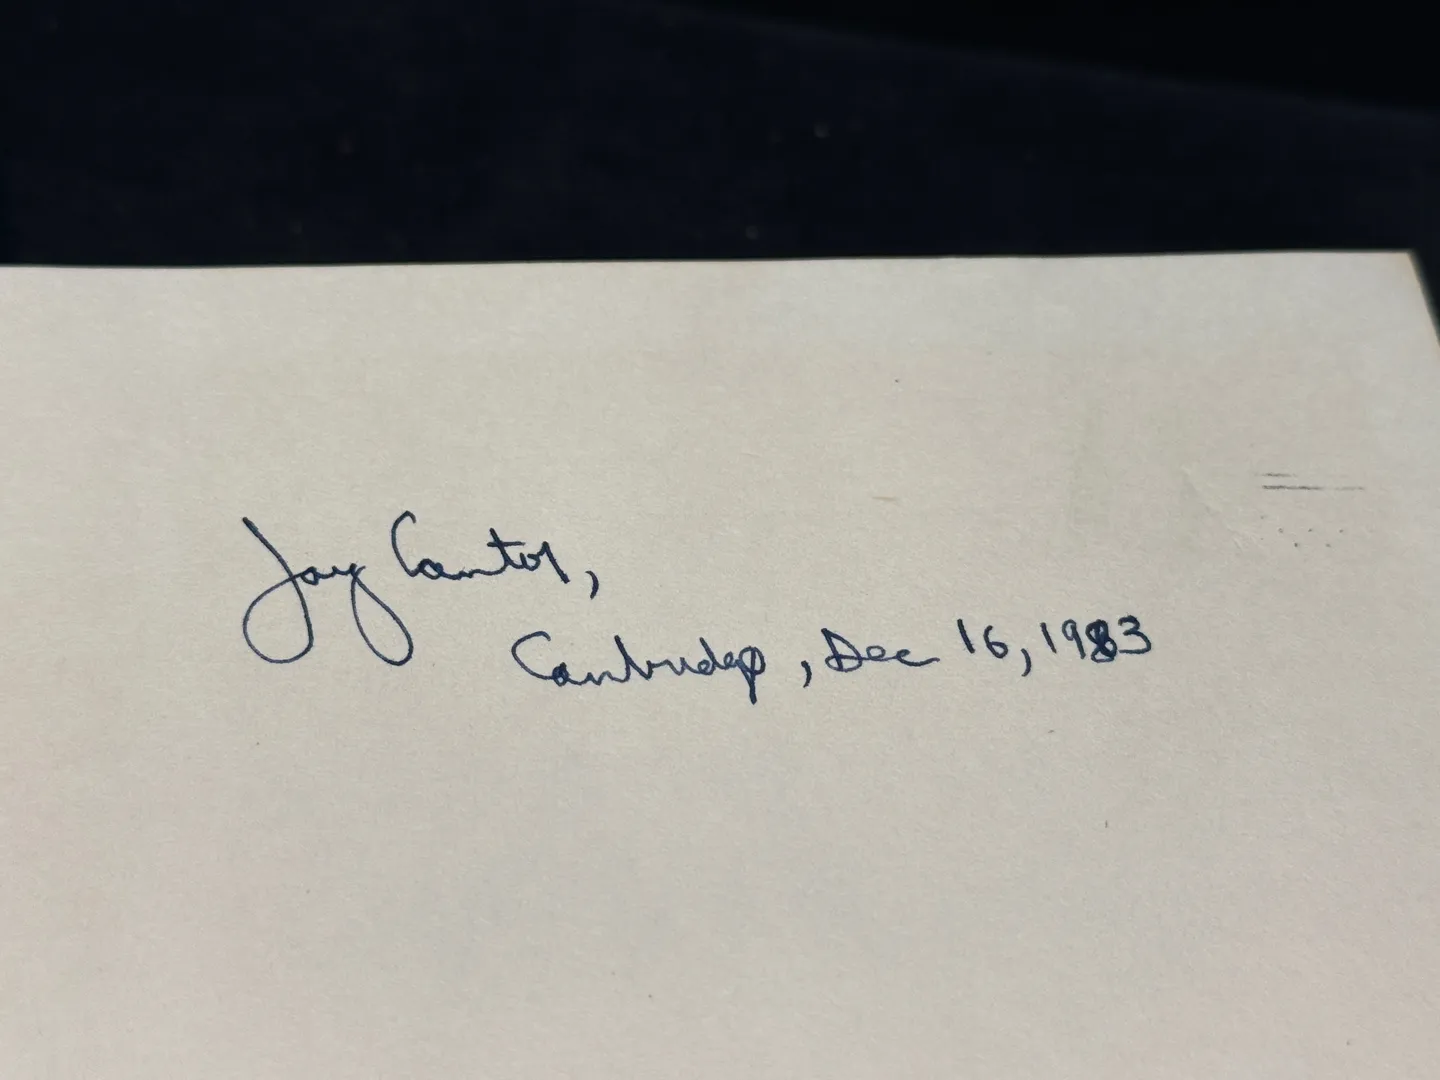 Jay Cantor,
Cambridge, Dec 16, 1983